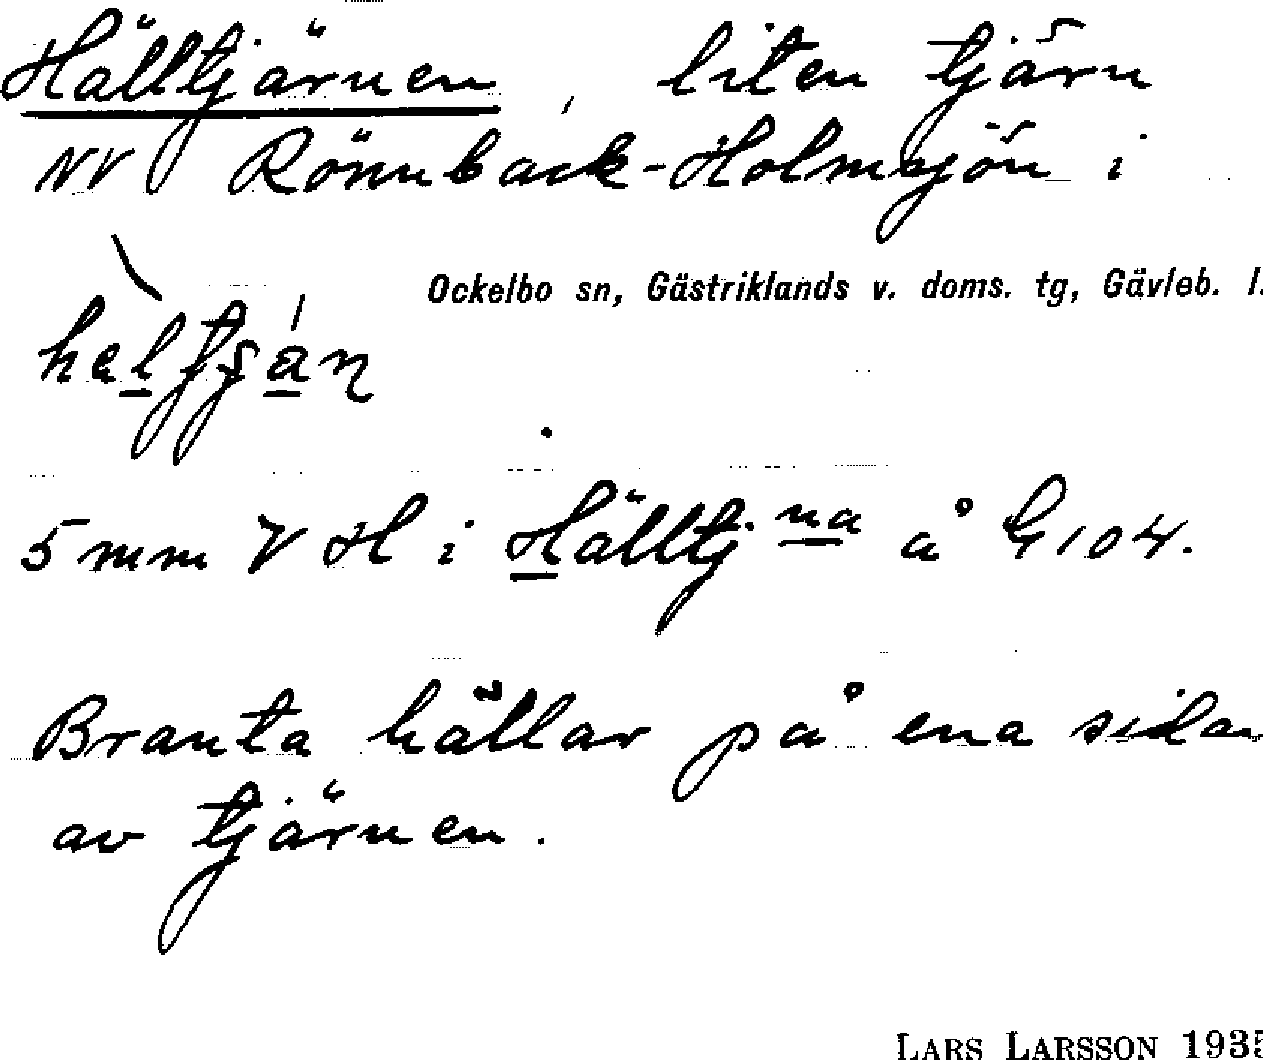 Hälltjärnen, liten tjärn
NV Rönnbäck-Holmsjön i
Ockelbo sn, Gästriklands v. doms. tg, Gävleb. l.
5 mm V H i Hälltjna å G 104.
Branta hällar på ena sidan
av tjärnen.
LARS LARSSON 1935